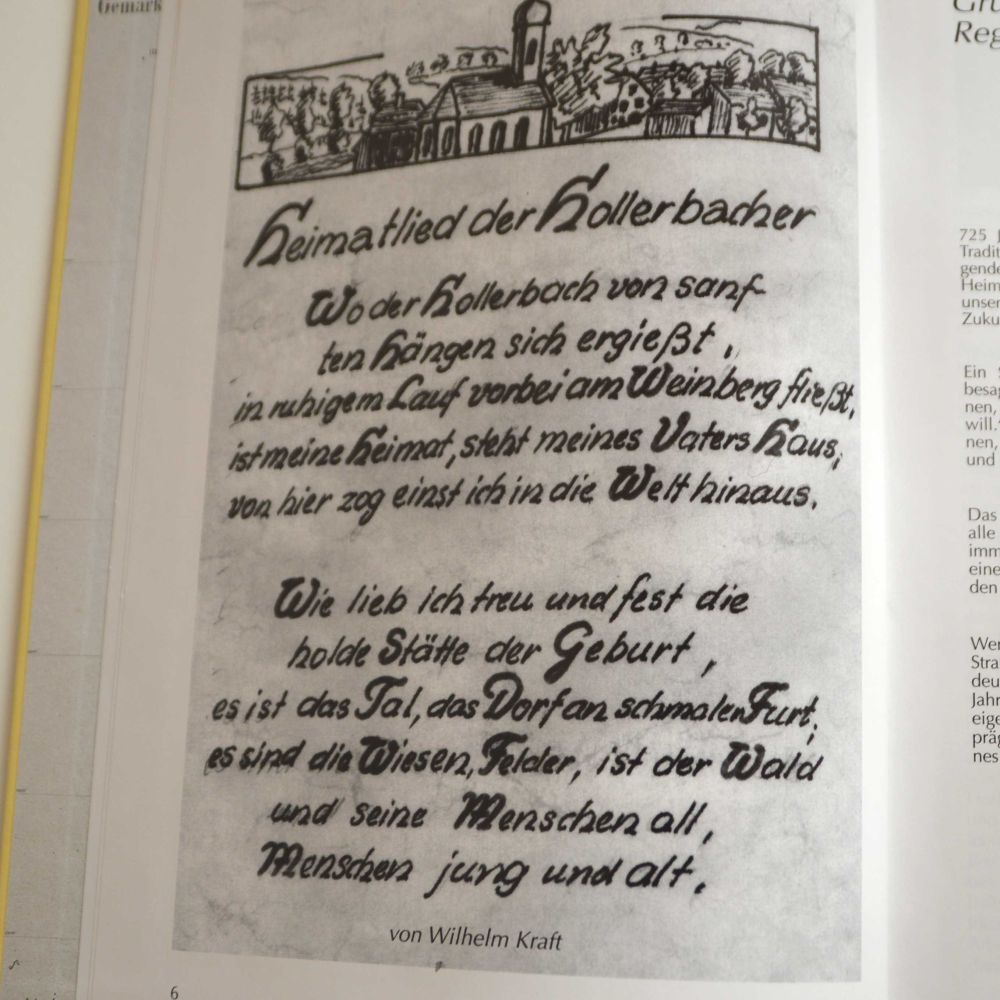 Gemark
Heimatlied der Hollerbacher
Wo der Hollerbach von sanf-
ten Hängen sich ergießt,
in ruhigem Lauf vorbei am Weinberg fließt,
ist meine Heimat, steht meines Vaters Haus,
von hier zog einst ich in die Welt hinaus.
Wie lieb ich treu und fest die
holde Stätte der Geburt,
es ist das Tal, das Dorf an schmalen Furt,
es sind die Wiesen, Felder, ist der Wald
und seine Menschen all,
Menschen jung und alt.
von Wilhelm Kraft
6
Reg
725 J
Tradit
gende
Heim
unser
Zuku
Ein
besa
nen,
will.
nen,
und
Das
alle
imm
eine
den
Wer
Stra
deu
Jahr
eige
präg
nes